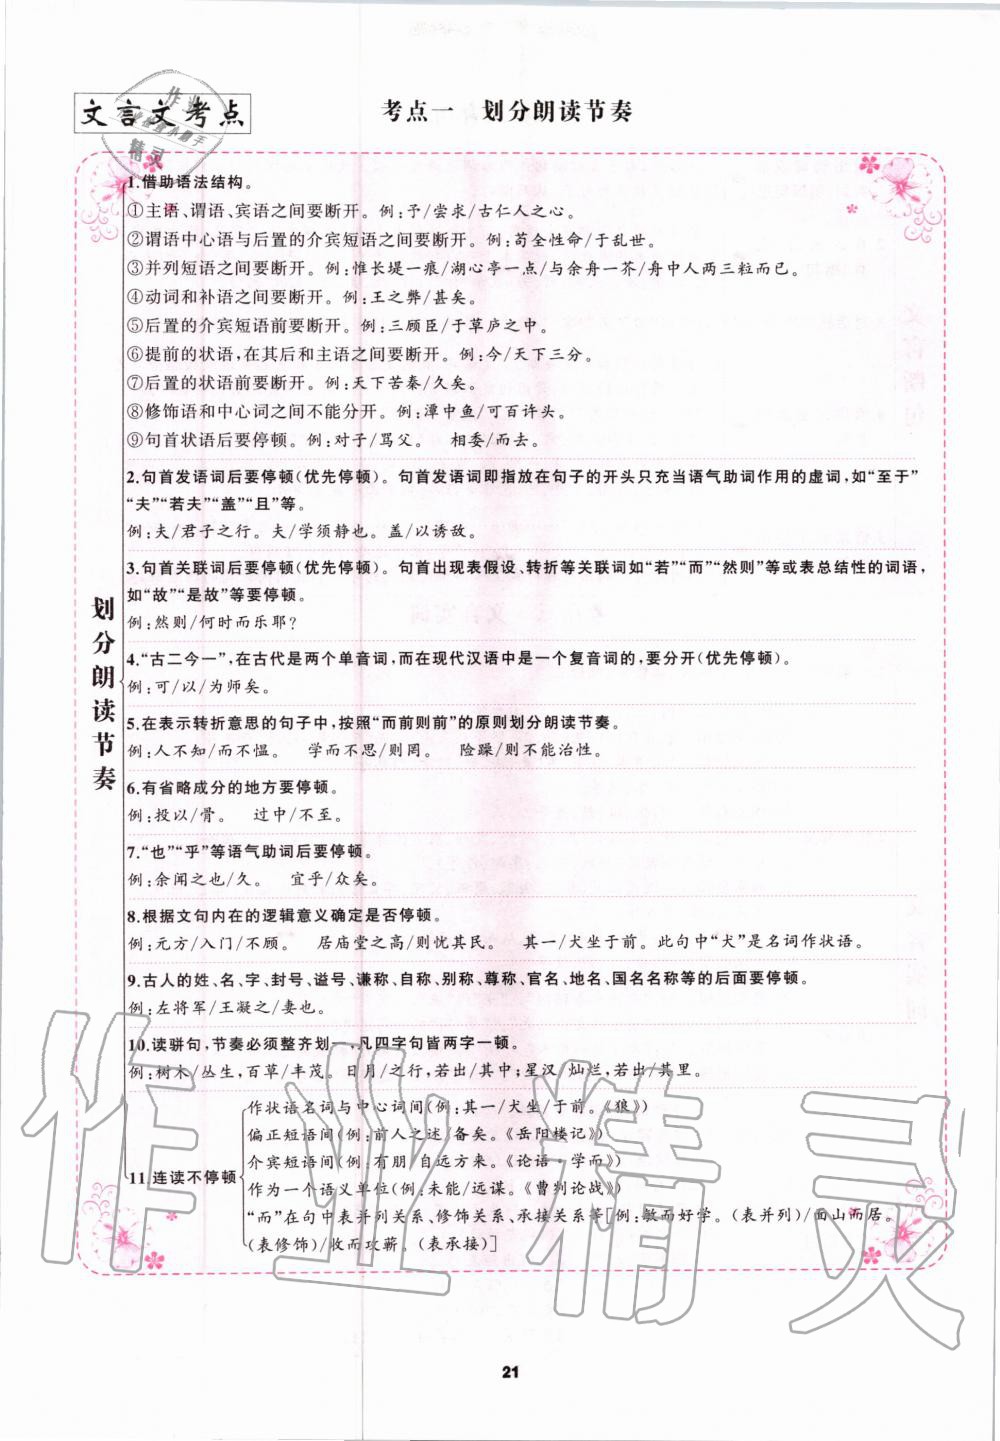 文言文考点
考点一 划分朗读节奏
划分朗读节奏
1.借助语法结构。
①主语、谓语、宾语之间要断开。例:予/尝求/古仁人之心。
②谓语中心语与后置的介宾短语之间要断开。例:苟全性命/于乱世。
③并列短语之间要断开。例:惟长堤一痕/湖心亭一点/与余舟一芥/舟中人两三粒而已。
④动词和补语之间要断开。例:王之弊/甚矣。
⑤后置的介宾短语前要断开。例:三顾臣/于草庐之中。
⑥提前的状语,在其后和主语之间要断开。例:今/天下三分。
⑦后置的状语前要断开。例:天下苦秦/久矣。
⑧修饰语和中心词之间不能分开。例:潭中鱼/可百许头。
⑨句首状语后要停顿。例:对子/骂父。 相委/而去。
2.句首发语词后要停顿(优先停顿)。句首发语词即指放在句子的开头只充当语气助词作用的虚词,如“至于”
“夫”“若夫”“盖”“且”等。
例:夫/君子之行。夫/学须静也。盖/以诱敌。
3.句首关联词后要停顿(优先停顿)。句首出现表假设、转折等关联词如“若”“而”“然则”等或表总结性的词语,
如“故”“是故”等要停顿。
例:然则/何时而乐耶?
4.“古二今一”,在古代是两个单音词,而在现代汉语中是一个复音词的,要分开(优先停顿)。
例:可/以/为师矣。
5.在表示转折意思的句子中,按照“而前则前”的原则划分朗读节奏。
例:人不知/而不愠。 学而不思/则罔。 险躁/则不能治性。
6.有省略成分的地方要停顿。
例:投以/骨。 过中/不至。
7.“也”“乎”等语气助词后要停顿。
例:余闻之也/久。 宜乎/众矣。
8.根据文句内在的逻辑意义确定是否停顿。
例:元方/入门/不顾。 居庙堂之高/则忧其民。 其一/犬坐于前。此句中“犬”是名词作状语。
9.古人的姓、名、字、封号、谥号、谦称、自称、别称、尊称、官名、地名、国名名称等的后面要停顿。
例:左将军/王凝之/妻也。
10.读骈句,节奏必须整齐划一,凡四字句皆两字一顿。
例:树木/丛生,百草/丰茂。日月/之行,若出/其中;星汉/灿烂,若出/其里。
11.连读不停顿
作状语名词与中心词间(例:其一/犬坐/于前。《狼》)
偏正短语间(例:前人之述/备矣。《岳阳楼记》)
介宾短语间(例:有朋/自远方来。《论语·学而》)
作为一个语义单位(例:未能/远谋。《曹刿论战》)
“而”在句中表并列关系、修饰关系、承接关系等[例:敏而好学。(表并列)/面山而居。
(表修饰)/收而攻蕲。(表承接)]
21
作业精灵